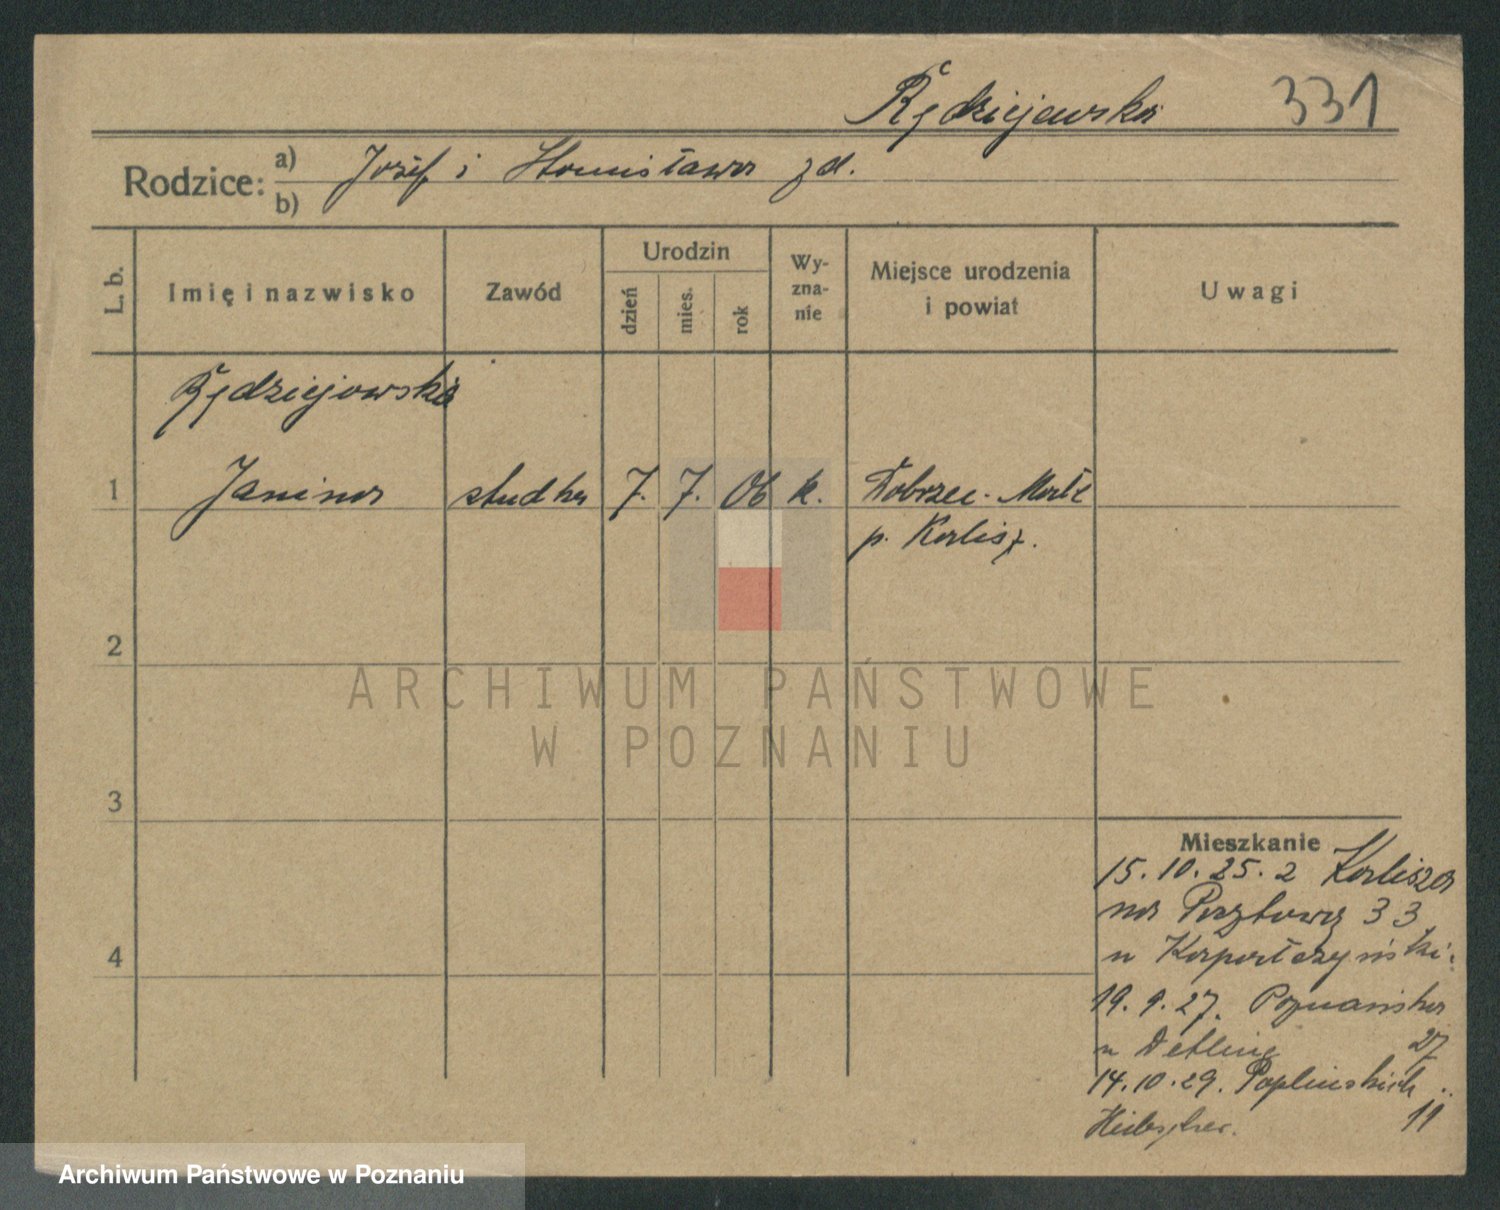 Rędziejewska 331
Rodzice: a) Józef i Stanisława zd.
b)
L. b.
Imię i nazwisko
Zawód
Urodzin
dzień
mies.
rok
Wy-
zna-
nie
Miejsce urodzenia
i powiat
Uwagi
Rędziejowska
1 Janina studka 7. 7. 06 k. Dobrzec-Mały
p. Kalisz.
2
3
4
Mieszkanie
15.10.25. z Kalisza
na Pocztową 33
u Kapałczyński.
19.9.27. Poznańska
u Detling 27
14.10.29. Paplińskich
11
ARCHIWUM PAŃSTWOWE
W POZNANIU
Archiwum Państwowe w Poznaniu